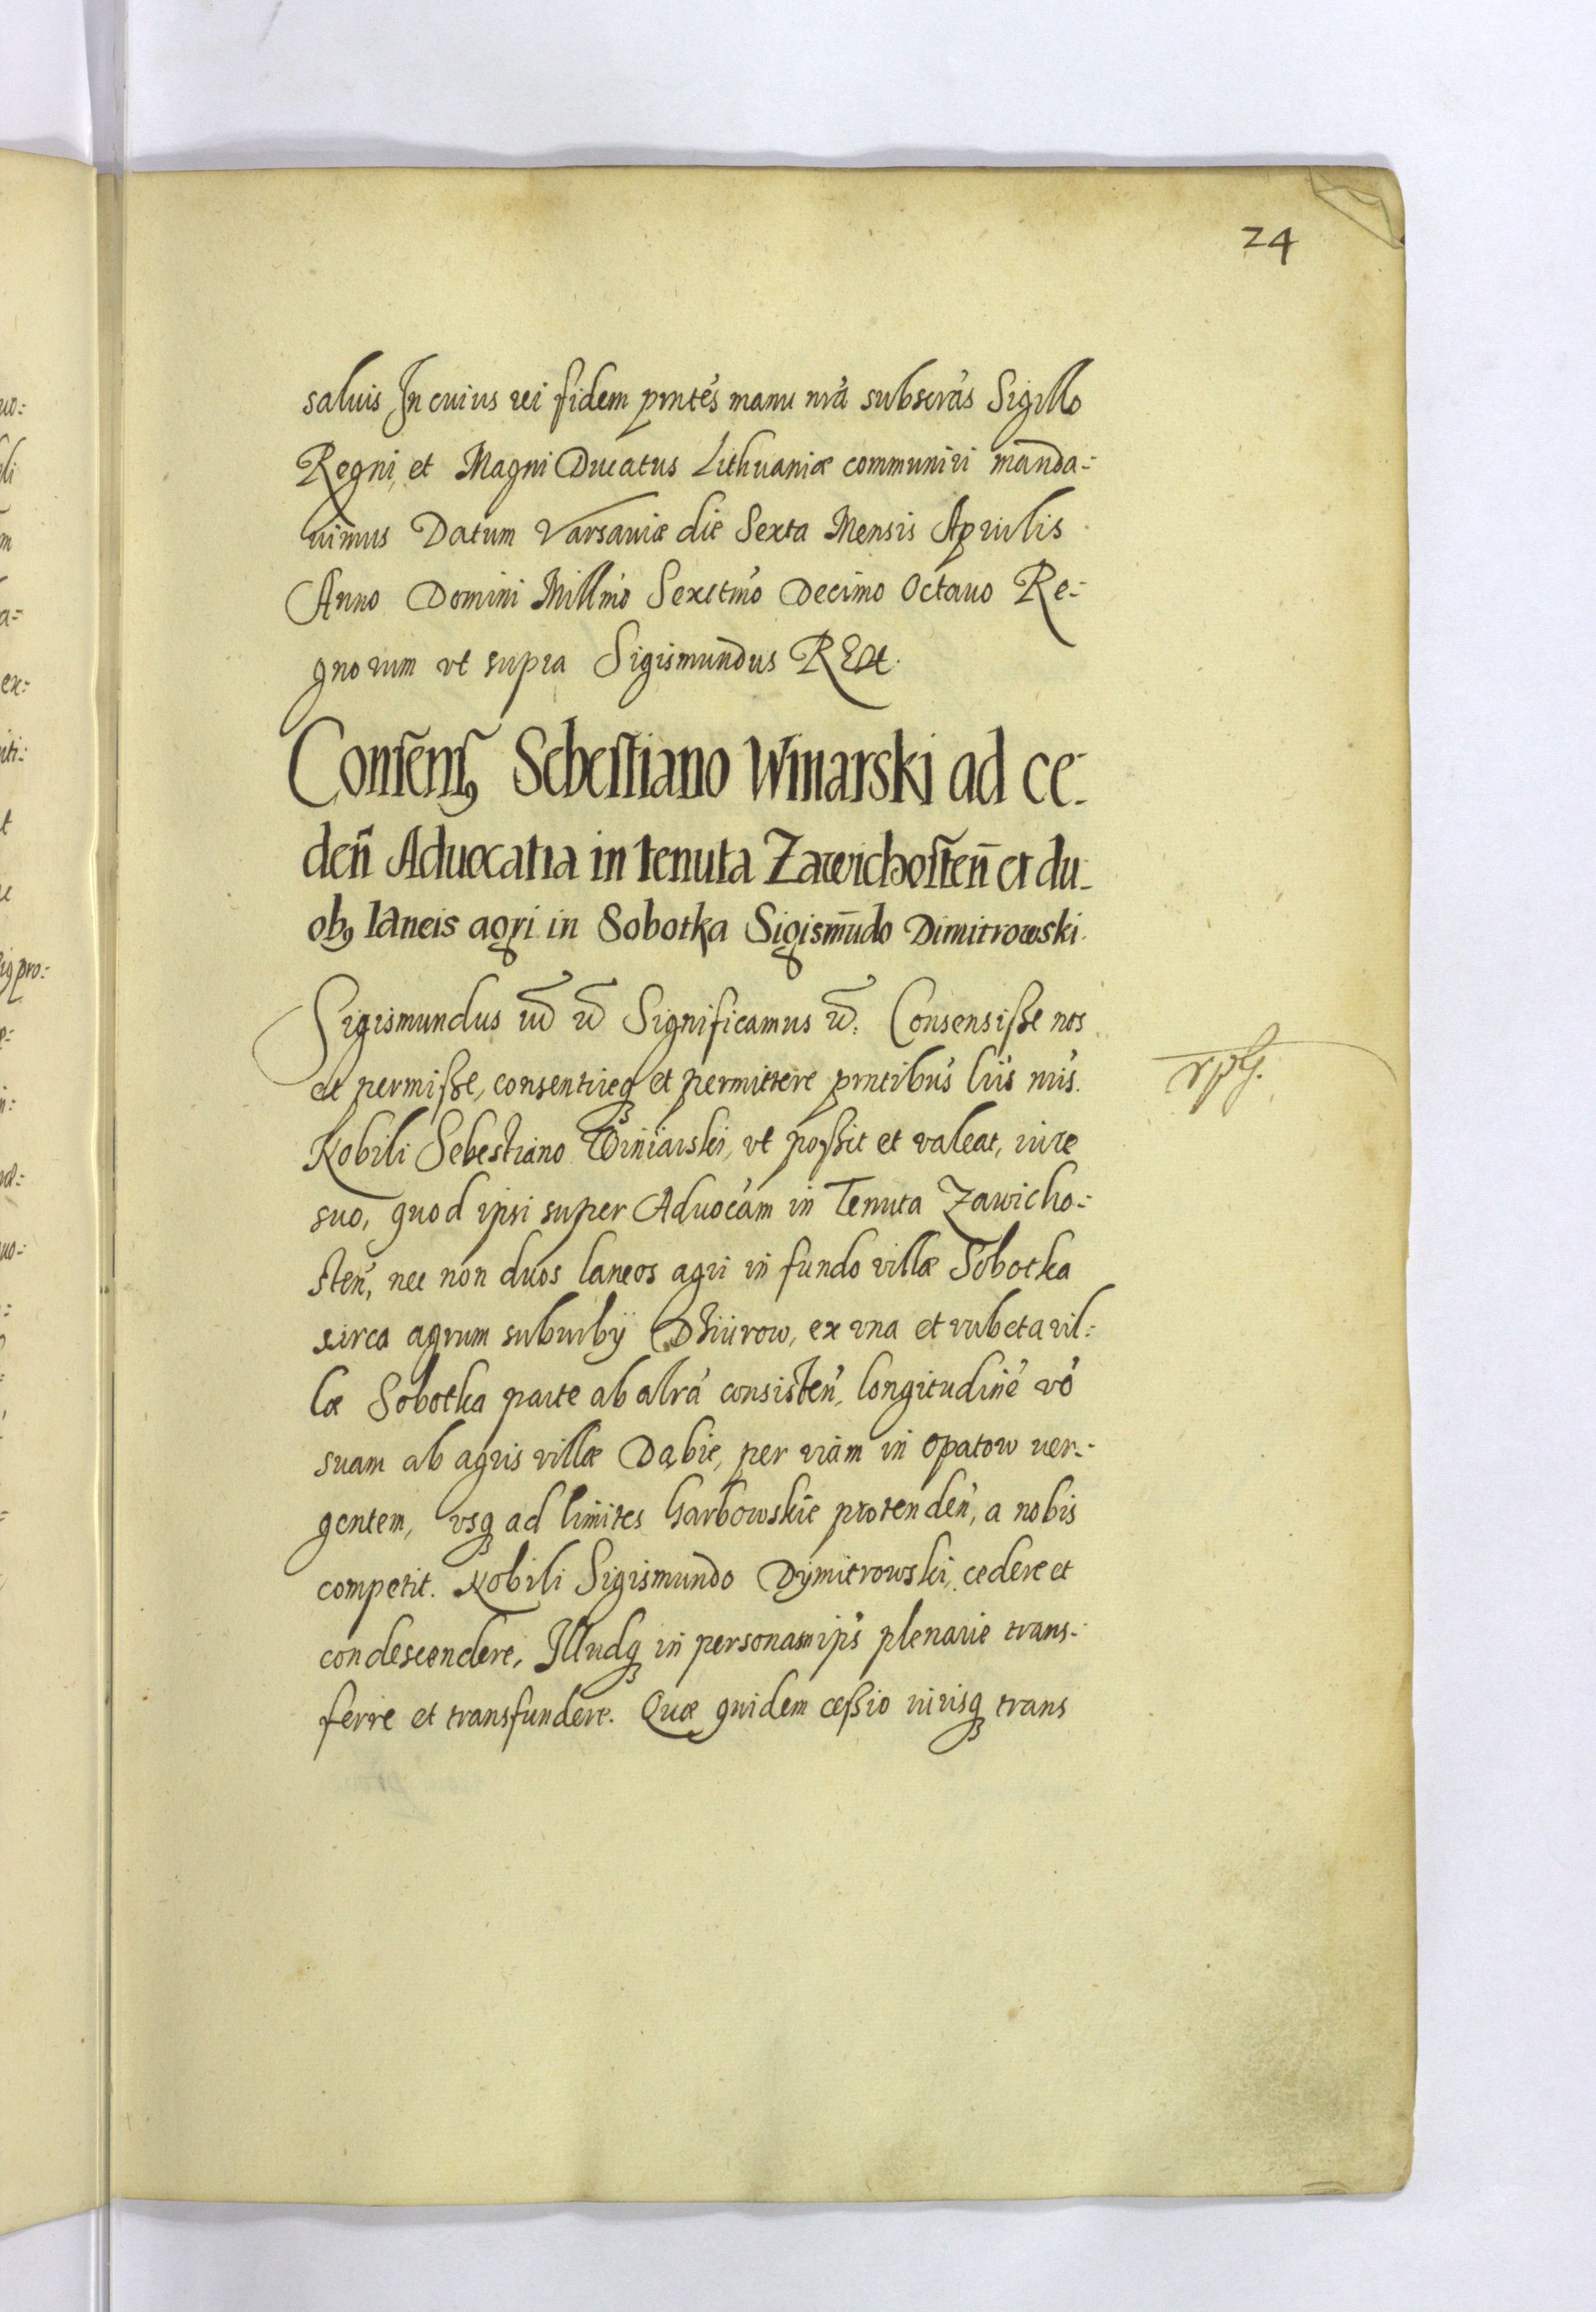 24
saluis In cuius rei fidem prntes manu nra subscras Sigillo
Regni, et Magni Ducatus Lithuaniæ communiri manda-
uimus Datum Varsauiæ die Sexta Mensis Aprilis
Anno Domini Millmo Sexctmo Decimo Octauo Re-
gnorum vt supra Sigismundus REX.
Consens9 Sebestiano Winarski ad ce-
den̄ Aduocatia in tenuta Zawichosten̄ et du-
ob9 laneis agri in Sobotka Sigism̄udo Dimitrowski.
Sigismundus Significamus Consensisse nos
et permisse, consentireq3 et permittere prntibus lris nris.
Nobili Sebestiano Winiarski, vt possit et valeat, iure
suo, quod ipsi super Aduocam in Tenuta Zawicho-
sten, nec non duos laneos agri in fundo villæ Sobotka
circa agrum suburbij ex vna et rubeta vil-
læ Sobotka parte ab altra consisten, longitudine vo
suam ab agris villæ Dąbie, per viam in Opatow ver-
gentem, vsq3 ad limites Garbowskie protenden, a nobis
competit. Nobili Sigismundo Dymitrowski, cedere et
condescendere, Illudq3 in personam ips plenarie trans-
ferre et transfundere. Quæ quidem cessio iurisq3 trans